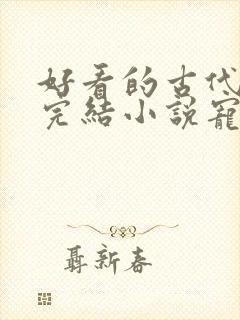 好看的古代
完結小說寵
聶新春